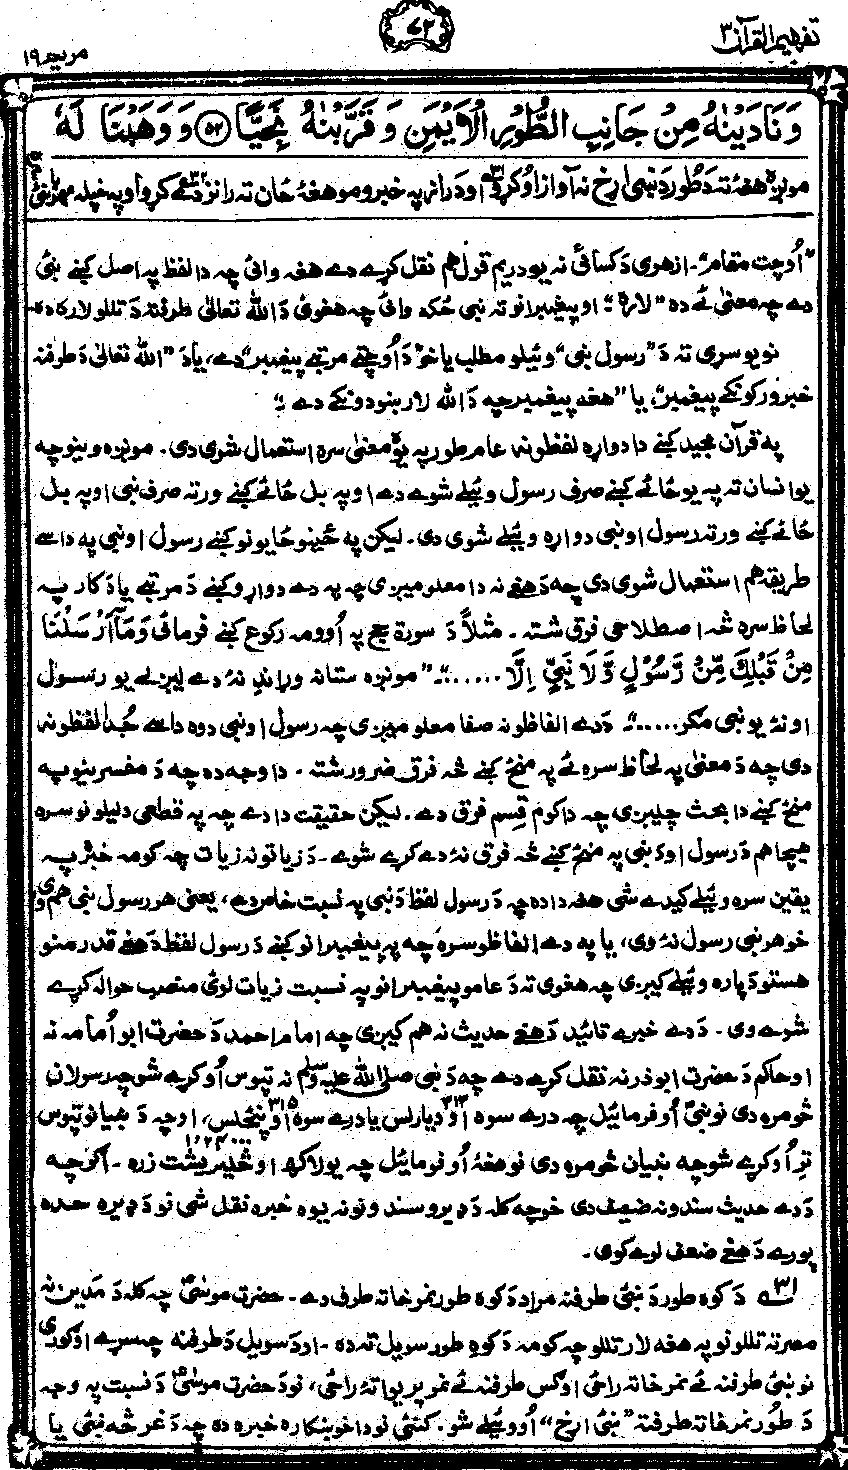 تفهیم القرآن ۳
۷۲
مریم ۱۹
وَنَادَيْنٰهُ مِنْ جَانِبِ الطُّوْرِ الْاَيْمَنِ وَقَرَّبْنٰهُ نَجِيًّا ۵۲ وَوَهَبْنَا لَهٗ
مونږه هغۀ ته دَ طور دَ ښی اړخ نه آواز اوکړو ۳۱ او دَ راز په خبرو مو هغۀ ځان ته را نزدې کړو ۳۲ او په خپله مهربانئ
”اُوچت مقام“۔ ازهری دَ کسائی نه یو دریم قول هم نقل کړے دے هغه وائی چه دا لفظ په اصل کښے نبئ
دے چه معنیٰ ئے ده ”لاره“؛ او پیغمبرانو ته نبی ځکه وائی چه هغوی دَ الله تعالیٰ طرفته دَ تللو لار ده
نو یو سړی ته دَ ”رسول نبی“ وئیلو مطلب یا خو دَ اُوچتے مرتبے پیغمبر“ دے، یا دَ ”الله تعالیٰ دَ طرفنه
خبر ورکونکے پیغمبر“، یا ”هغه پیغمبر چه دَ الله لار ښودونکے دے“
په قرآن مجید کښے دا دواړه لفظونه عام طور په یوۀ معنیٰ سره استعمال شوی دی. مونږه وینو چه
یو انسان ته په یو ځائے کښے صرف رسول وئیلے شوے دے او په بل ځائے کښے ورته صرف نبی او په بل
ځائے کښے ورته رسول او نبی دواړه وئیلے شوی دی۔ لیکن په ځینو ځایونو کښے رسول او نبی په داسے
طریقه هم استعمال شوی دی چه دَ هغے نه دا معلومیږی چه په دے دواړو کښے دَ مرتبے یا دَ کار په
لحاظ سره څه اصطلاحی فرق شته۔ مثلاً دَ سورة حج په اُوومه رکوع کښے فرمائی وَمَآ اَرْسَلْنَا
مِنْ قَبْلِكَ مِنْ رَّسُوْلٍ وَّلَا نَبِيٍّ اِلَّا ......“۔ ”مونږه ستا نه وړاندِ نۀ دے لیږلے یو رسول
او نۀ یو نبی مگر.....“۔ دَدے الفاظو نه صفا معلومیږی چه رسول او نبی دوه داسے جُدا لفظونه
دی چه دَ معنیٰ په لحاظ سره ئے په منځ کښے څه فرق ضرور شته. دا وجه ده چه دَ مفسرینو په
منځ کښے دا بحث چلیږی چه دا کوم قِسم فرق دے۔ لیکن حقیقت دا دے چه په قطعی دلیلونو سره
هیچا هم دَ رسول او دَ نبی په منځ کښے څه فرق نۀ دے کړے شوے۔ دَ زیاتو نه زیات چه کومه خبره په
یقین سره وئیلے کیدے شی هغه دا ده چه دَ رسول لفظ دَ نبی په نسبت خاص دے، یعنی هر رسول نبی هم وی
خو هر نبی رسول نۀ وی، یا په دے الفاظو سره چه په پیغمبرانو کښے دَ رسول لفظ دَ هغے قدرمنو
هستو دَ پاره وئیلے کیږی چه هغوی ته دَ عامو پیغمبرانو په نسبت زیات لوئ منصب حواله کړے
شوے وی۔ دَدے خبرے تائید دَ هغے حدیث نه هم کیږی چه امام احمد دَ حضرت ابو اُمامه نه
او حاکم دَ حضرت ابوذر نه نقل کړے دے چه دَ نبی صلی الله علیه وسلم نه تپوس اُوکړے شو چه رسولان
څومره دی نو نبیؐ اُوفرمائیل چه درے سوه او دیارلس ۳۱۳ یا درے سوه او پنځلس ۳۱۵، او چه دَ نبیانو تپوس
تِر اُوکړے شو چه نبیان څومره دی نو هغۀ اُوفرمائیل چه یو لاکھ او څلیریشت زره ۱،۲۴۰۰۰۔ اگرچه
دَدے حدیث سندونه ضعیف دی خو چه کله دَ ډیرو سندونو نه یوه خبره نقل شی نو دَ ډیره حده
پورے دَ هغے ضعف لرے کوی۔
۳۱ دَ کوه طور دَ ښئ طرفنه مراد دَ کوه طور نمرخاته طرف دے۔ حضرت موسیٰؑ چه کله دَ مَدین نه
مصر ته تللو نو په هغه لار تللو چه کومه دَ کوه طور سویل ته ده۔ او دَ سویل دَ طرفنه چه سړے اُوگوری
نو ښئ طرفنه ئے نمرخاته راځی او گس طرفنه ئے نمرپریواته راځی، نو دَ حضرت موسیٰؑ دَ نسبت په وجه
دَ طُور نمرخاته طرفته ”ښئ اړخ“ اُووئیلے شو. گنی نو دا خو ښکاره خبره ده چه دَ غر څه ښئ یا